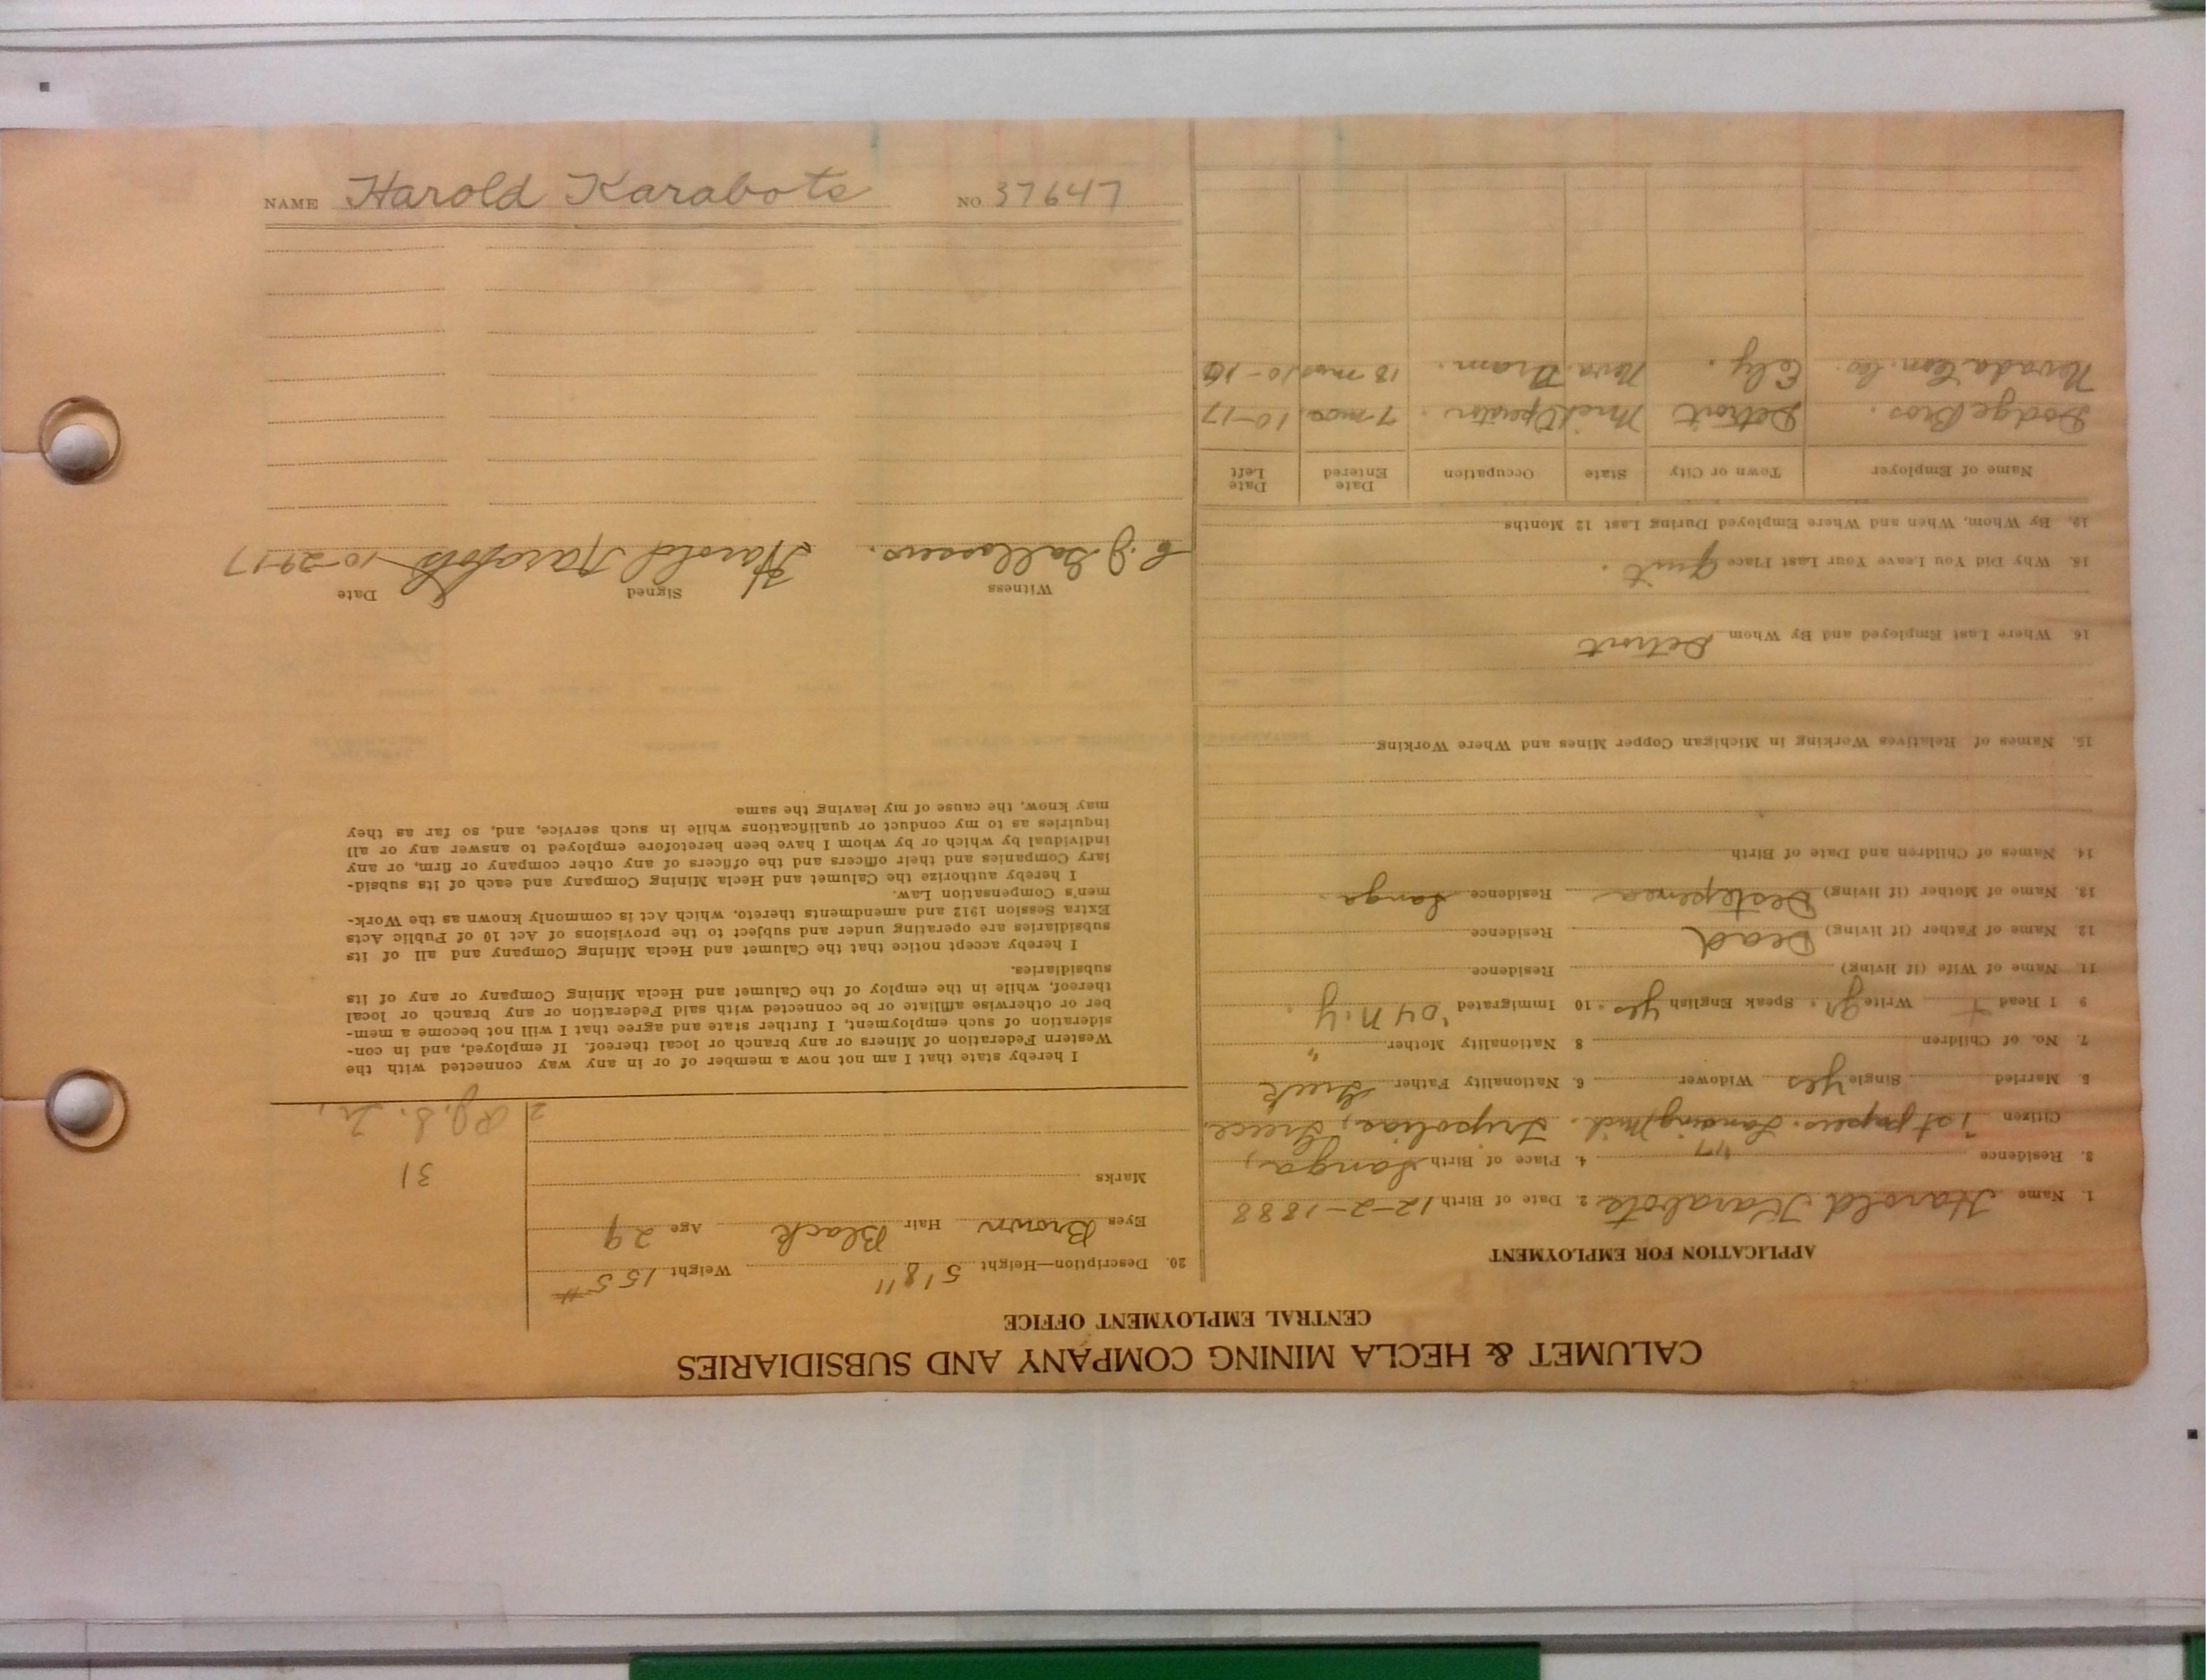 CALUMET & HECLA MINING COMPANY AND SUBSIDIARIES
CENTRAL EMPLOYMENT OFFICE
APPLICATION FOR EMPLOYMENT
1. Name Harold Karabots 2. Date of Birth 12-2-1888
3. Residence 4. Place of Birth Langa,
Citizen 1st papers. Lansing, Mich. '17 Tripolias, Greece.
5. Married Single Yes Widower 6. Nationality Father Greek
7. No. of Children 8 Nationality Mother "
9 I Read + Write Gr. Speak English yes. 10 Immigrated '04 N.Y.
11. Name of Wife (if living) Residence
12. Name of Father (if living) Dead Residence
13. Name of Mother (if living) Residence Langa.
14. Names of Children and Date of Birth
15. Names of Relatives Working in Michigan Copper Mines and Where Working
16. Where Last Employed and By Whom Detroit
18. Why Did You Leave Your Last Place Quit.
19. By Whom, When and Where Employed During Last 12 Months
Name of Employer Town or City State Occupation Date Entered Date Left
Dodge Bros. Detroit Mich Operator. 7 mos. 10-17
Nevada Con. Co. Ely. Neva. Tram. 18 mos 10-16
20. Description—Height 5'8" Weight 155#
Eyes Brown Hair Black Age 29
Marks
31
I hereby state that I am not now a member of or in any way connected with the
Western Federation of Miners or any branch or local thereof. If employed, and in con-
sideration of such employment, I further state and agree that I will not become a mem-
ber or otherwise affiliate or be connected with said Federation or any branch or local
thereof, while in the employ of the Calumet and Hecla Mining Company or any of its
subsidiaries.
I hereby accept notice that the Calumet and Hecla Mining Company and all of its
subsidiaries are operating under and subject to the provisions of Act 10 of Public Acts
Extra Session 1912 and amendments thereto, which Act is commonly known as the Work-
men's Compensation Law.
I hereby authorize the Calumet and Hecla Mining Company and each of its subsid-
iary Companies and their officers and the officers of any other company or firm, or any
individual by which or by whom I have been heretofore employed to answer any or all
inquiries as to my conduct or qualifications while in such service, and, so far as they
may know, the cause of my leaving the same
Witness Signed Date
Harold Karabots 10-29-17
NAME Harold Karabots NO 37647